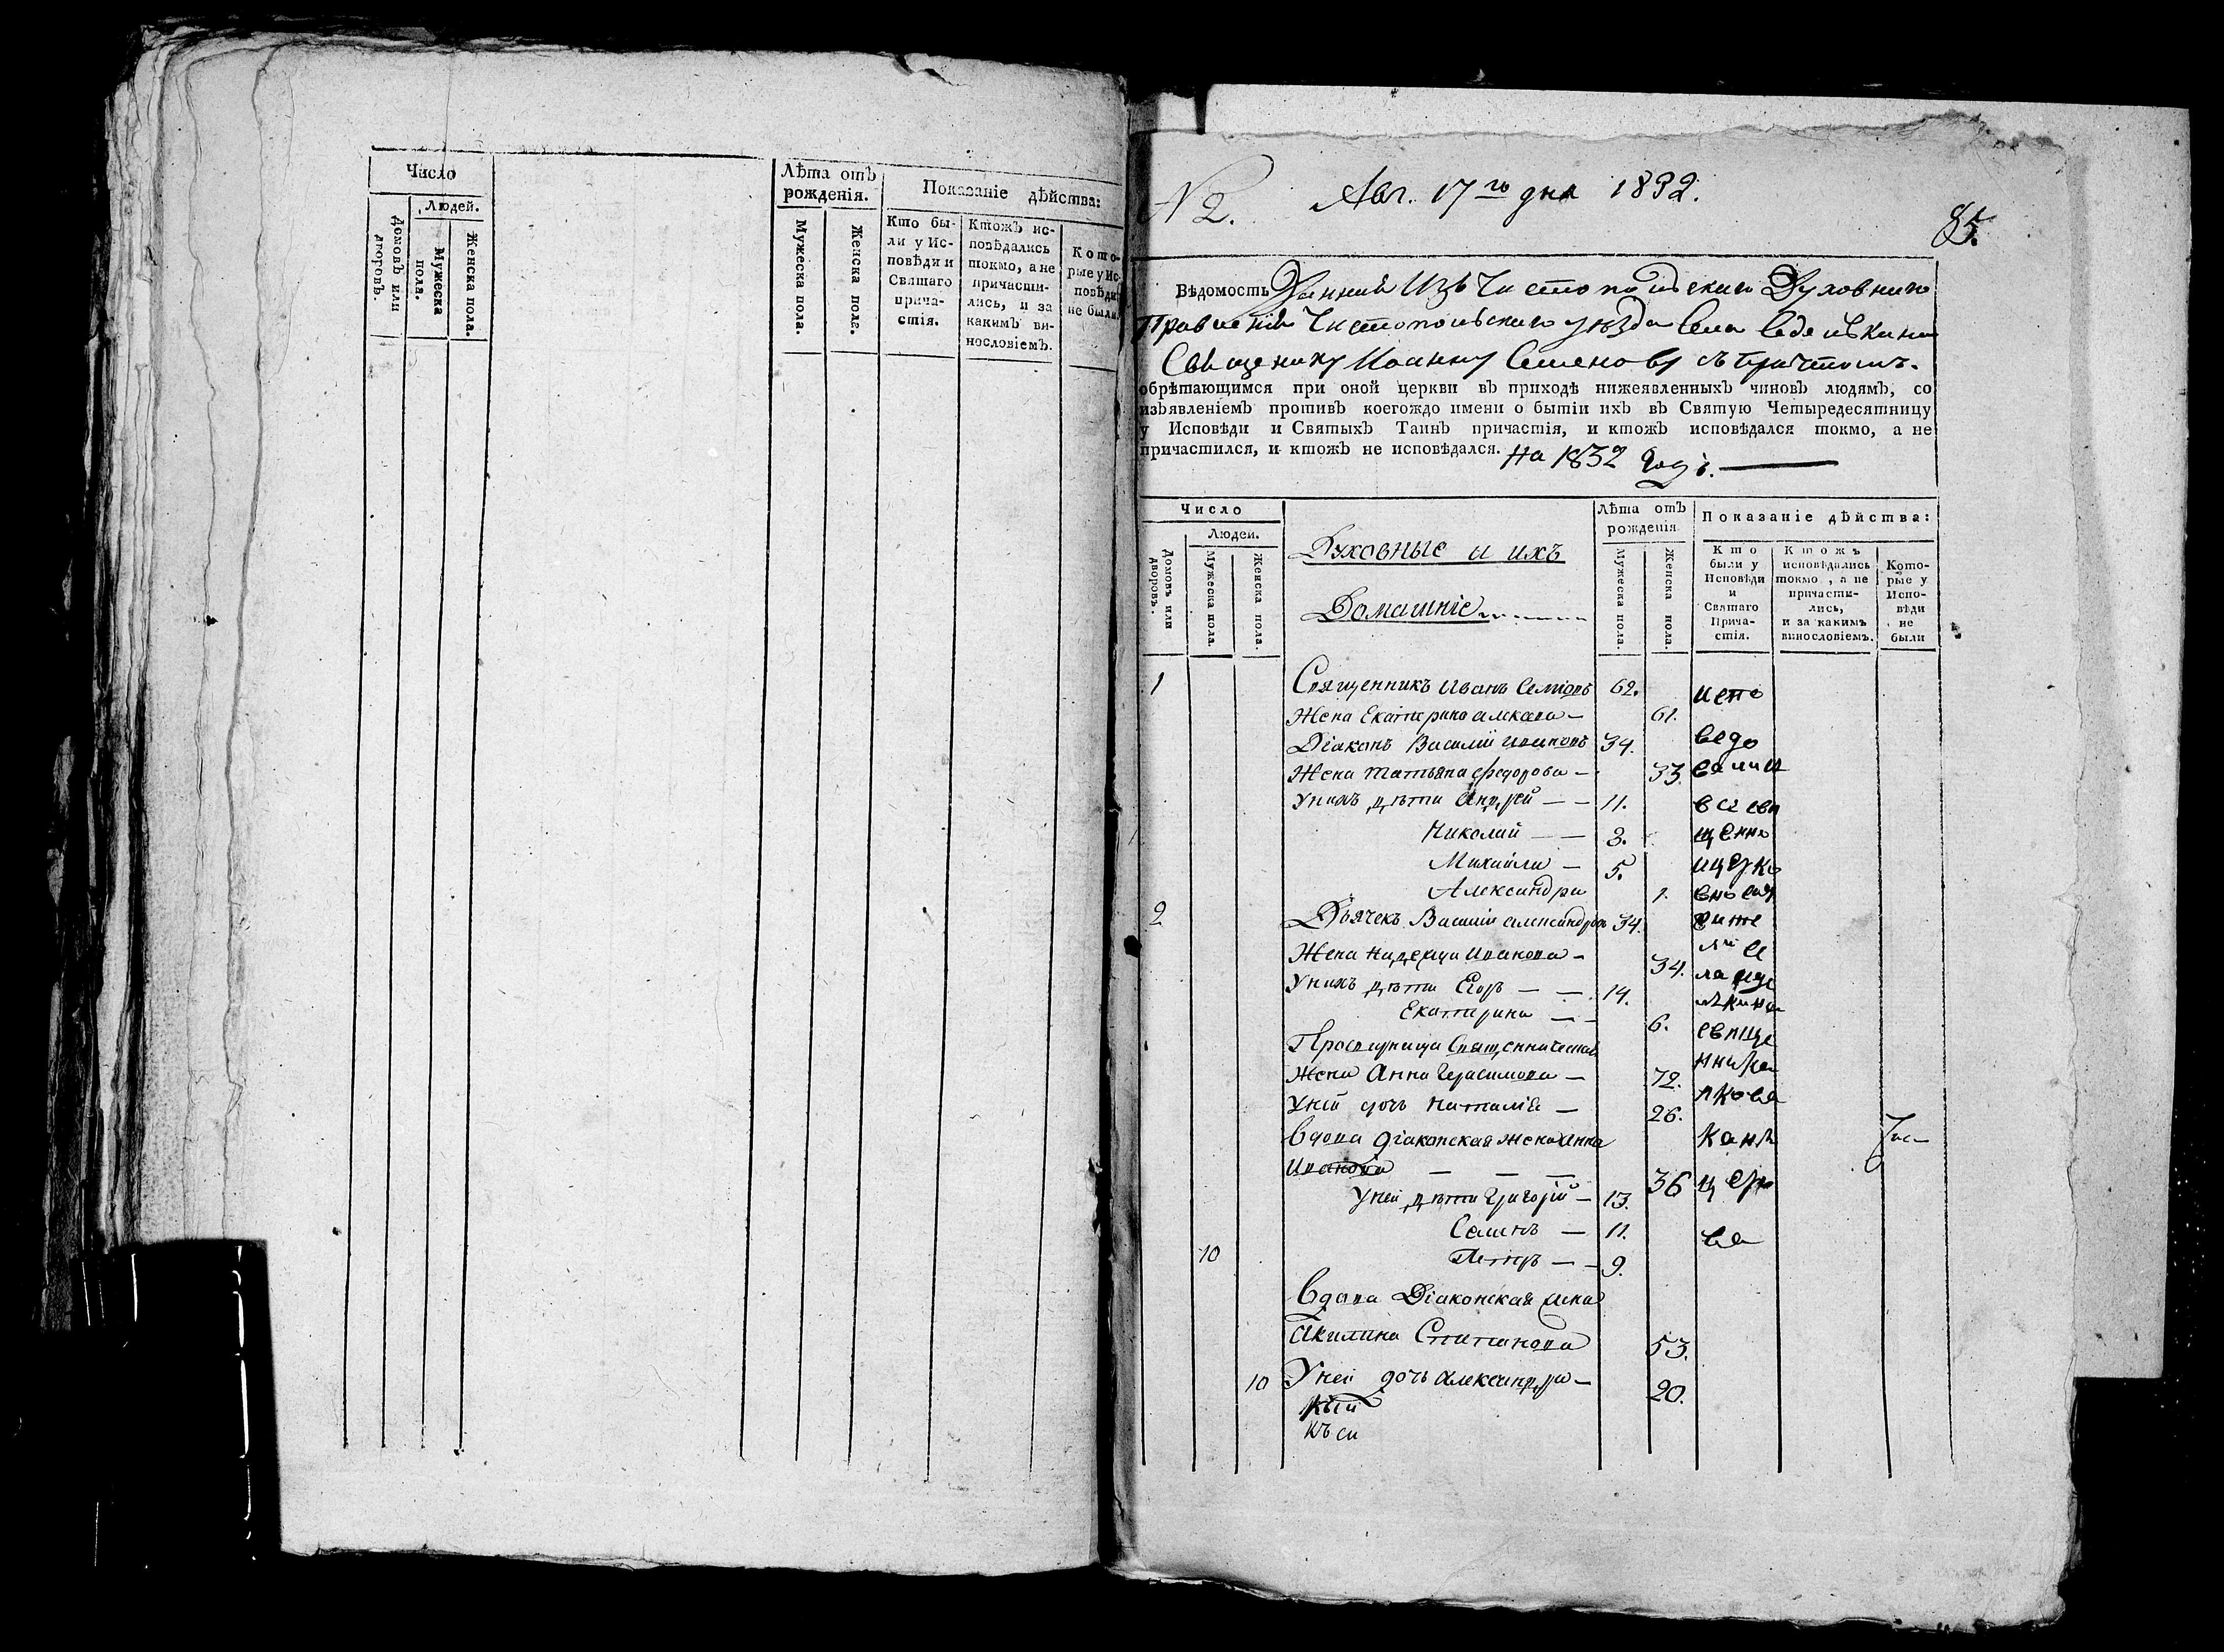 Число
Людей.
Домовъ или дворовъ.
Мужеска пола.
Женска пола.
Лѣта отъ рожденія.
Мужеска пола.
Женска пола.
Показаніе дѣйства:
Кто бы-
ли у Ис-
повѣди и
Святаго
прича-
стія.
Ктожъ ис-
повѣдались
токмо, а не
причасти-
лись, и за
какимъ ви-
нословіемъ.
Кото-
рые у Ис-
повѣди
не были.
N 2.
Авг. 17го дня 1832.
85.
Вѣдомость Данная Изъ Чистопольскаго Духовнаго
Правленія Чистопольскаго уѣзда Села
Священику Иоанну Семенову съ причтомъ.
обрѣтающимся при оной церкви въ приходѣ нижеявленныхъ чиновъ людямъ, со
изъявленіемъ противъ коегождо имени о бытіи ихъ въ Святую Четыредесятницу
у Исповѣди и Святыхъ Таинъ причастія, и ктожъ исповѣдался токмо, а не
причастился, и ктожъ не исповѣдался. На 1832 Годъ.
Число
Людей.
Домовъ или дворовъ.
Мужеска пола.
Женска пола.
Духовные и ихъ
Домашніе
Лѣта отъ
рожденія
Мужеска пола.
Женска пола.
Показаніе дѣйства:
Кто
были у
Исповѣди
и
Святаго
Прича-
стія.
Ктожъ
исповѣдались
токмо, а не
причасти-
лись,
и за какимъ
винословіемъ.
Кото-
рые у
Испо-
вѣди
не
были
1 Священникъ Иванъ Семіонъ 62. испо
Жена Екатерина 61.
Діаконъ Василій Ивановъ 34. ведо
Жена Татьяна Федорова — 33.
Унихъ дѣти Андрей — — 11.
Николай — — 3. щенно
Михаила — 5. ицерко
Александра 1.
2 Дьячекъ Василій Александровъ 34.
Жена Надежда Иванова — 34.
Унихъ дѣти Егоръ — — 14.
Екатерина — — 6.
Просвирница Священническая
Жена Анна Герасимова — 72.
Уней дочь Наталія — 26.
Вдова діаконская жена Анна
Иванова — — — 36
Уней дѣти Григорій — 13.
Семинъ — 11. ва
10 Петръ — — 9.
Вдова Діаконская жена
Акилина Степанова 53.
10 Уней дочь Александра — 20.